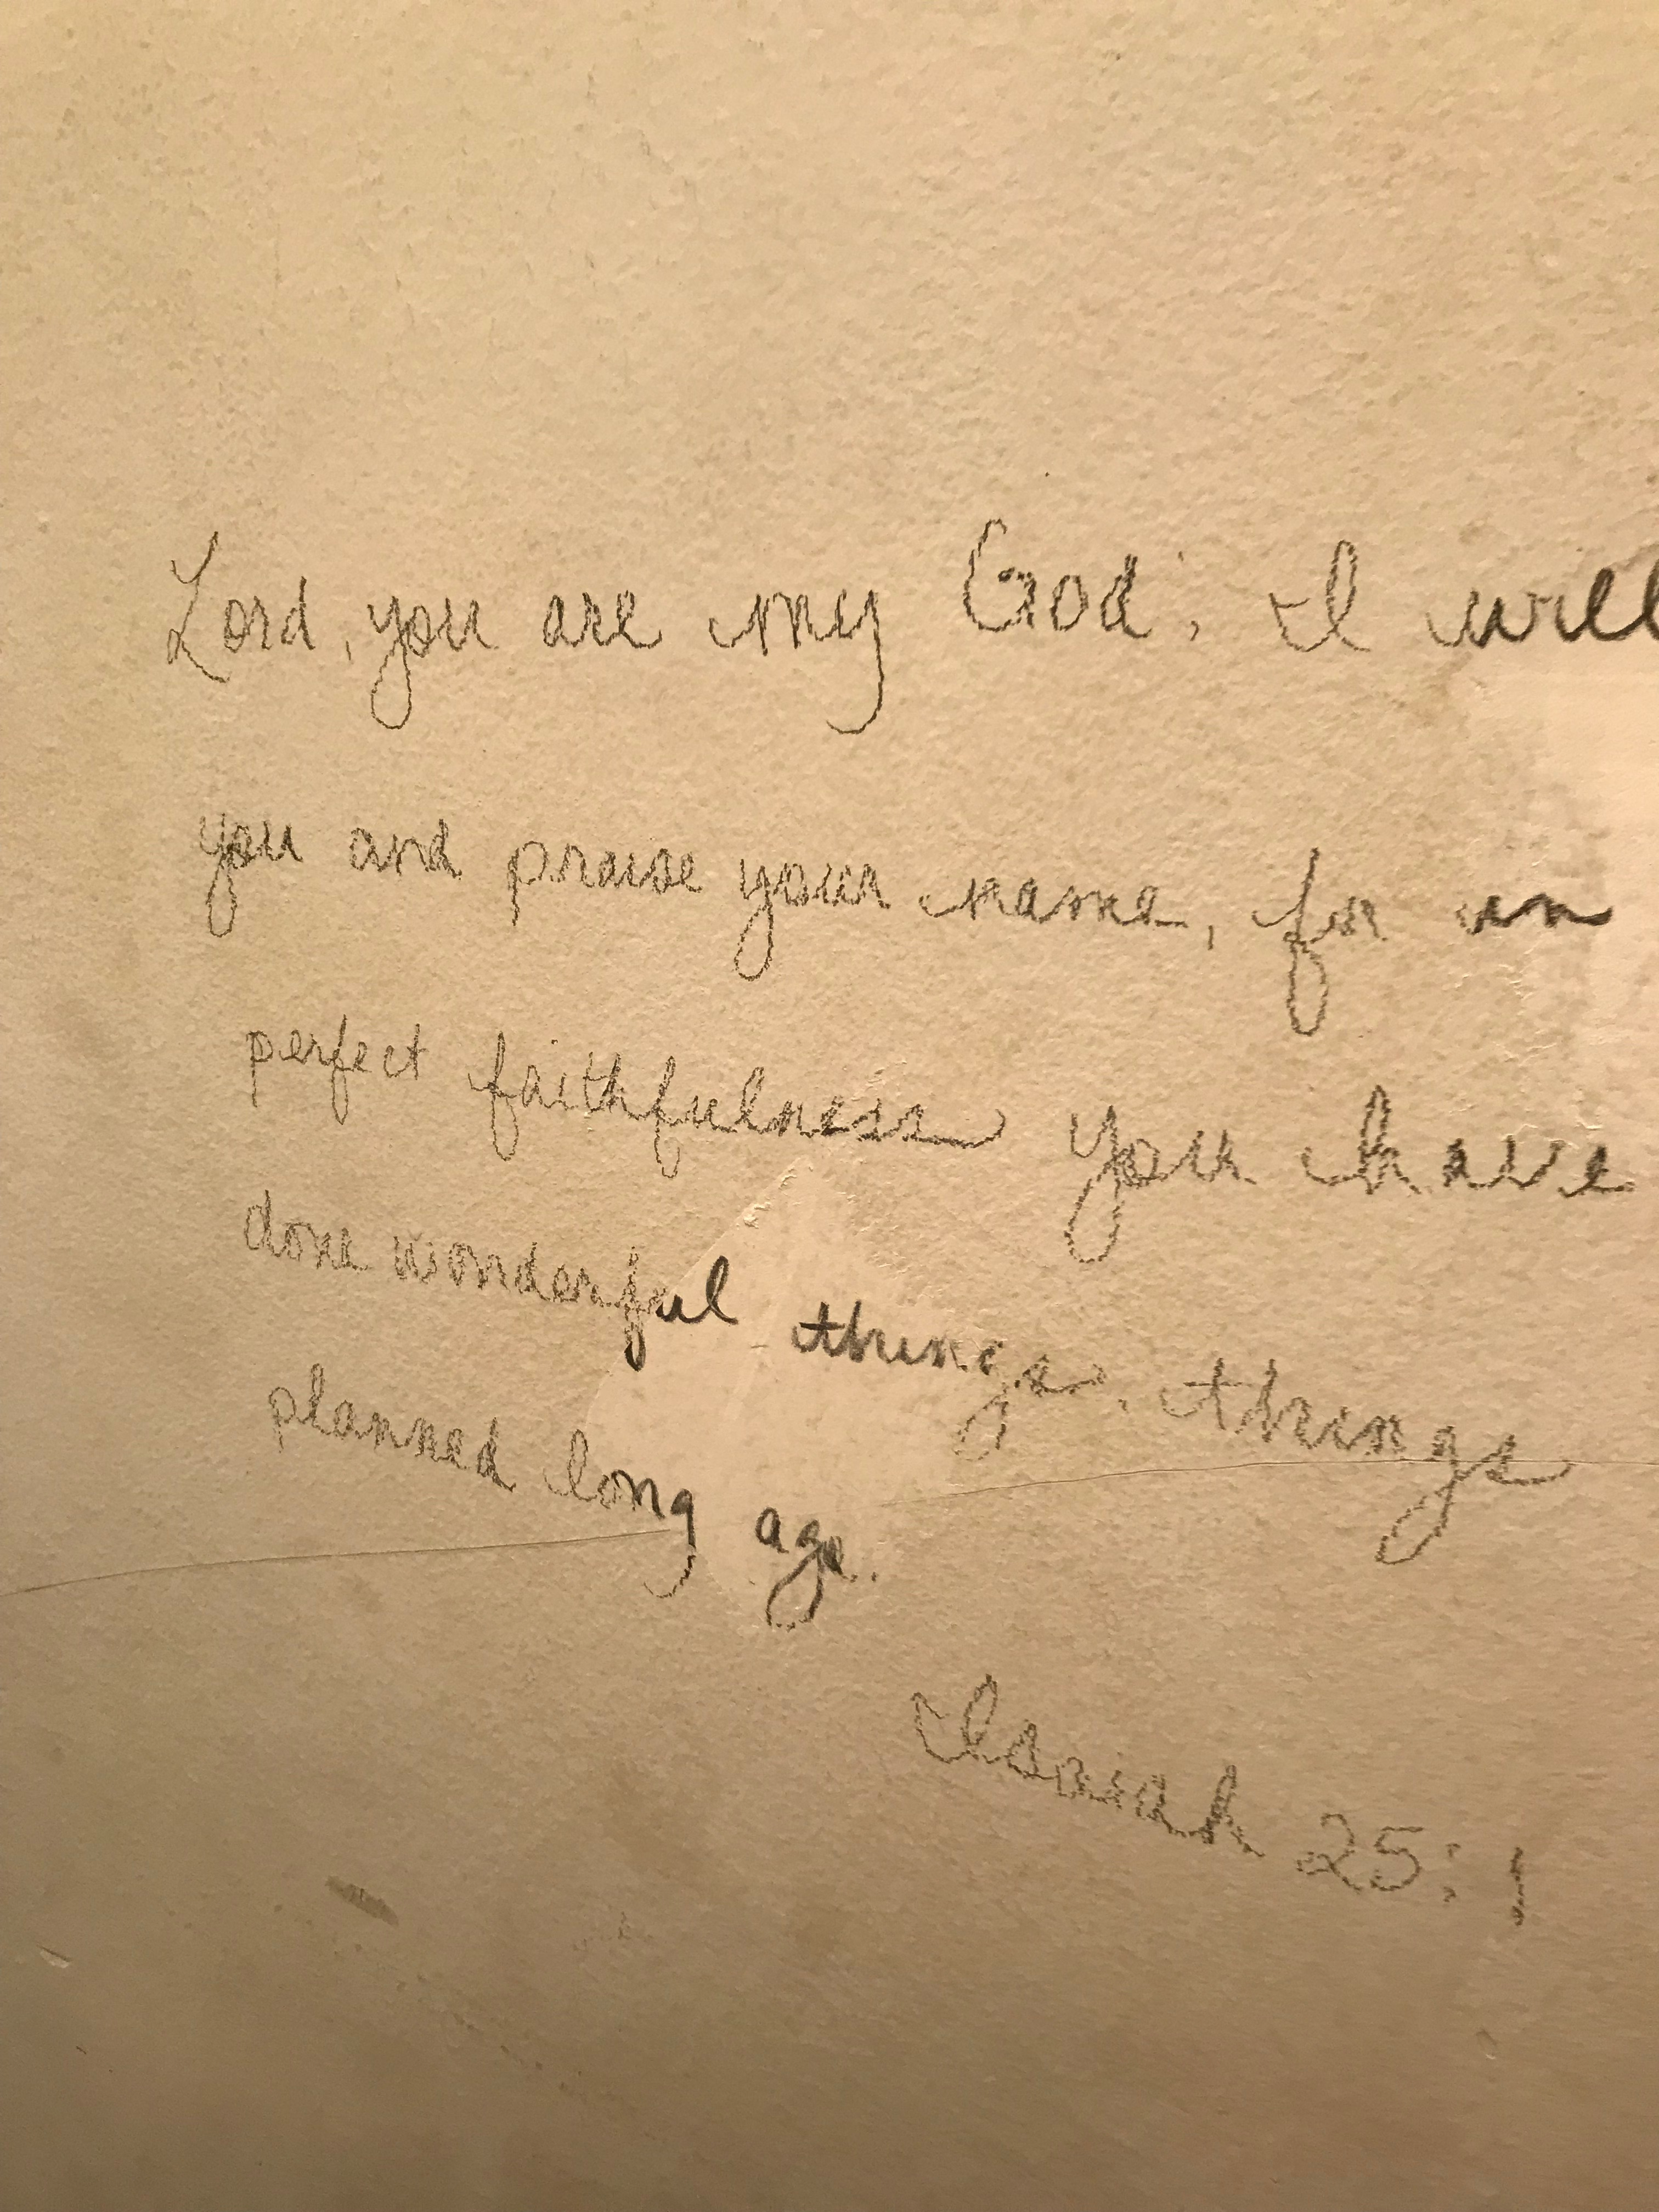 Lord, you are my God; I will
you and praise your name, for in
perfect faithfulness you have
done wonderful things, things
planned long ago.
Isaiah 25:1